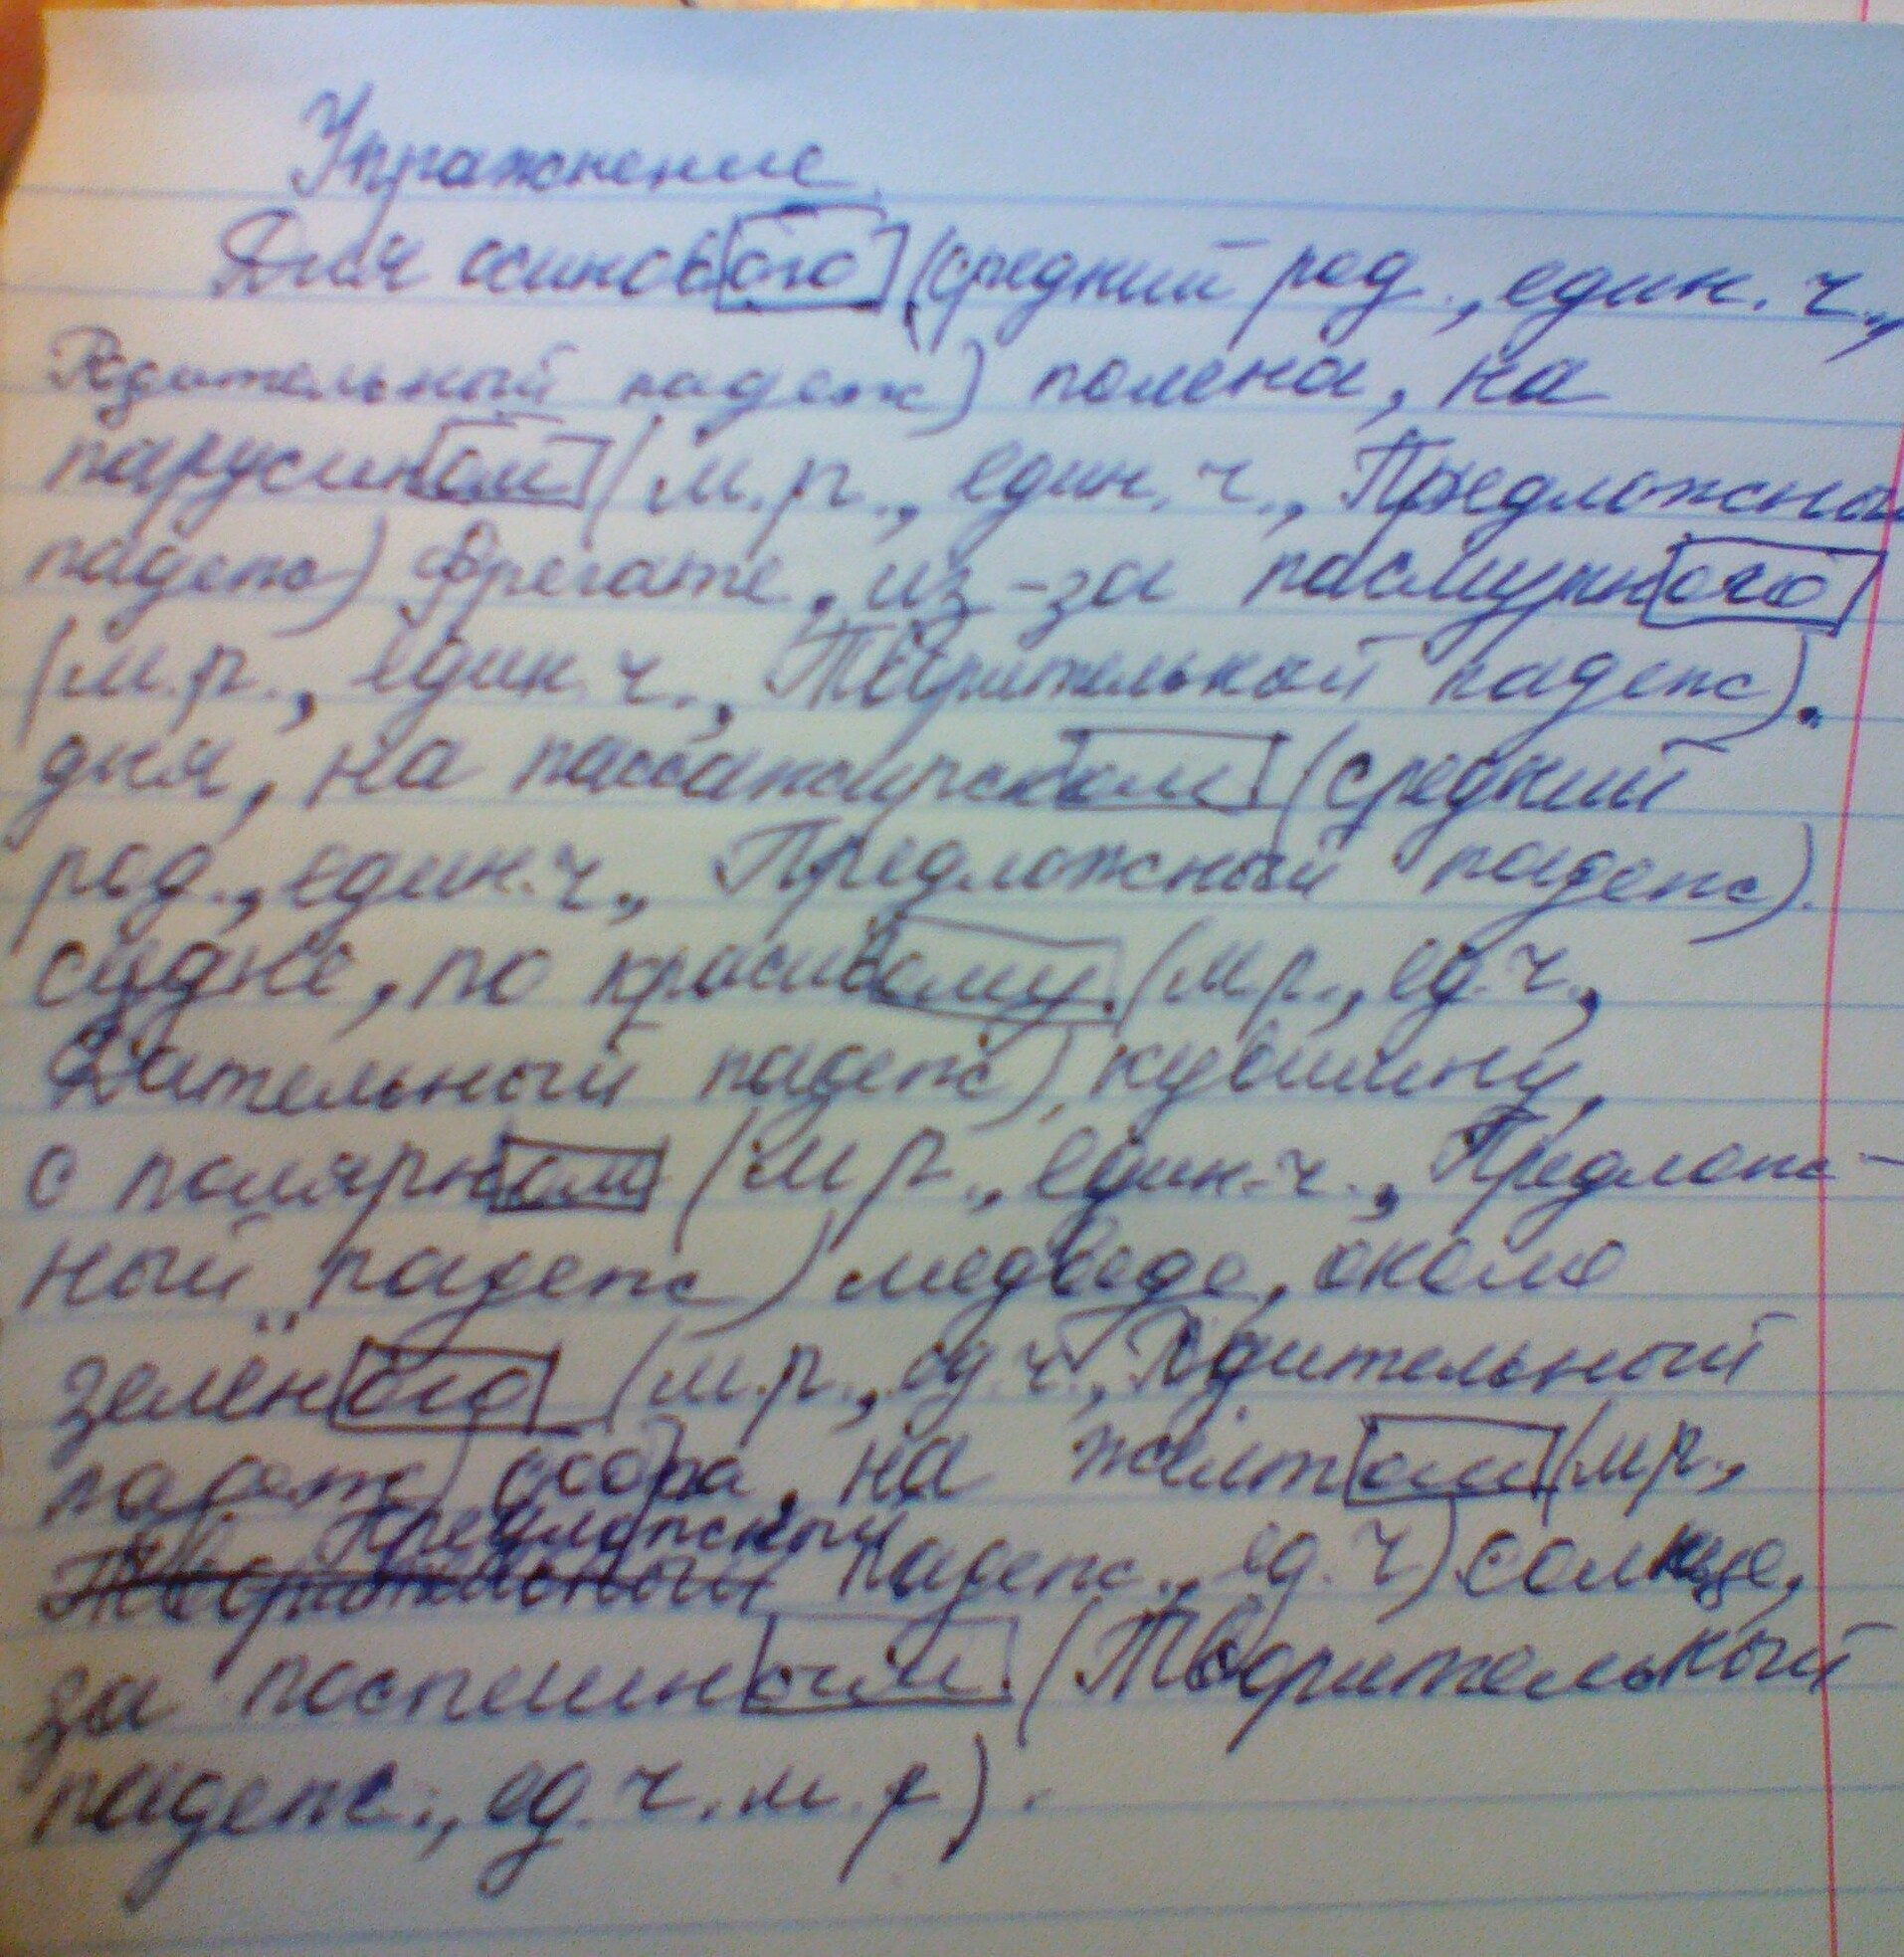 Упражнение
Для осинового (средний род., един. ч.,
Родительный падеж) полена, на
парусином (м.р., един. ч., Предложны
падеж) фрегате, из-за пасмурного
(м.р., един. ч., Творительный падеж).
дня, на пассажирском (средний
род., един.ч., Предложный падеж).
судне, по красивому. (м.р., ед.ч.,
Дательный падеж), кувшину,
о полярном (м р., един.ч., Предлож-
ный падеж) медведе, около
зелёного (м.р., ед.ч., Родительный
падеж) , на желтом (м р.,
Предложный
Творительный падеж., ед. ч) солнце,
за поспешным. (Творительный
падеж., ед. ч. м. р).